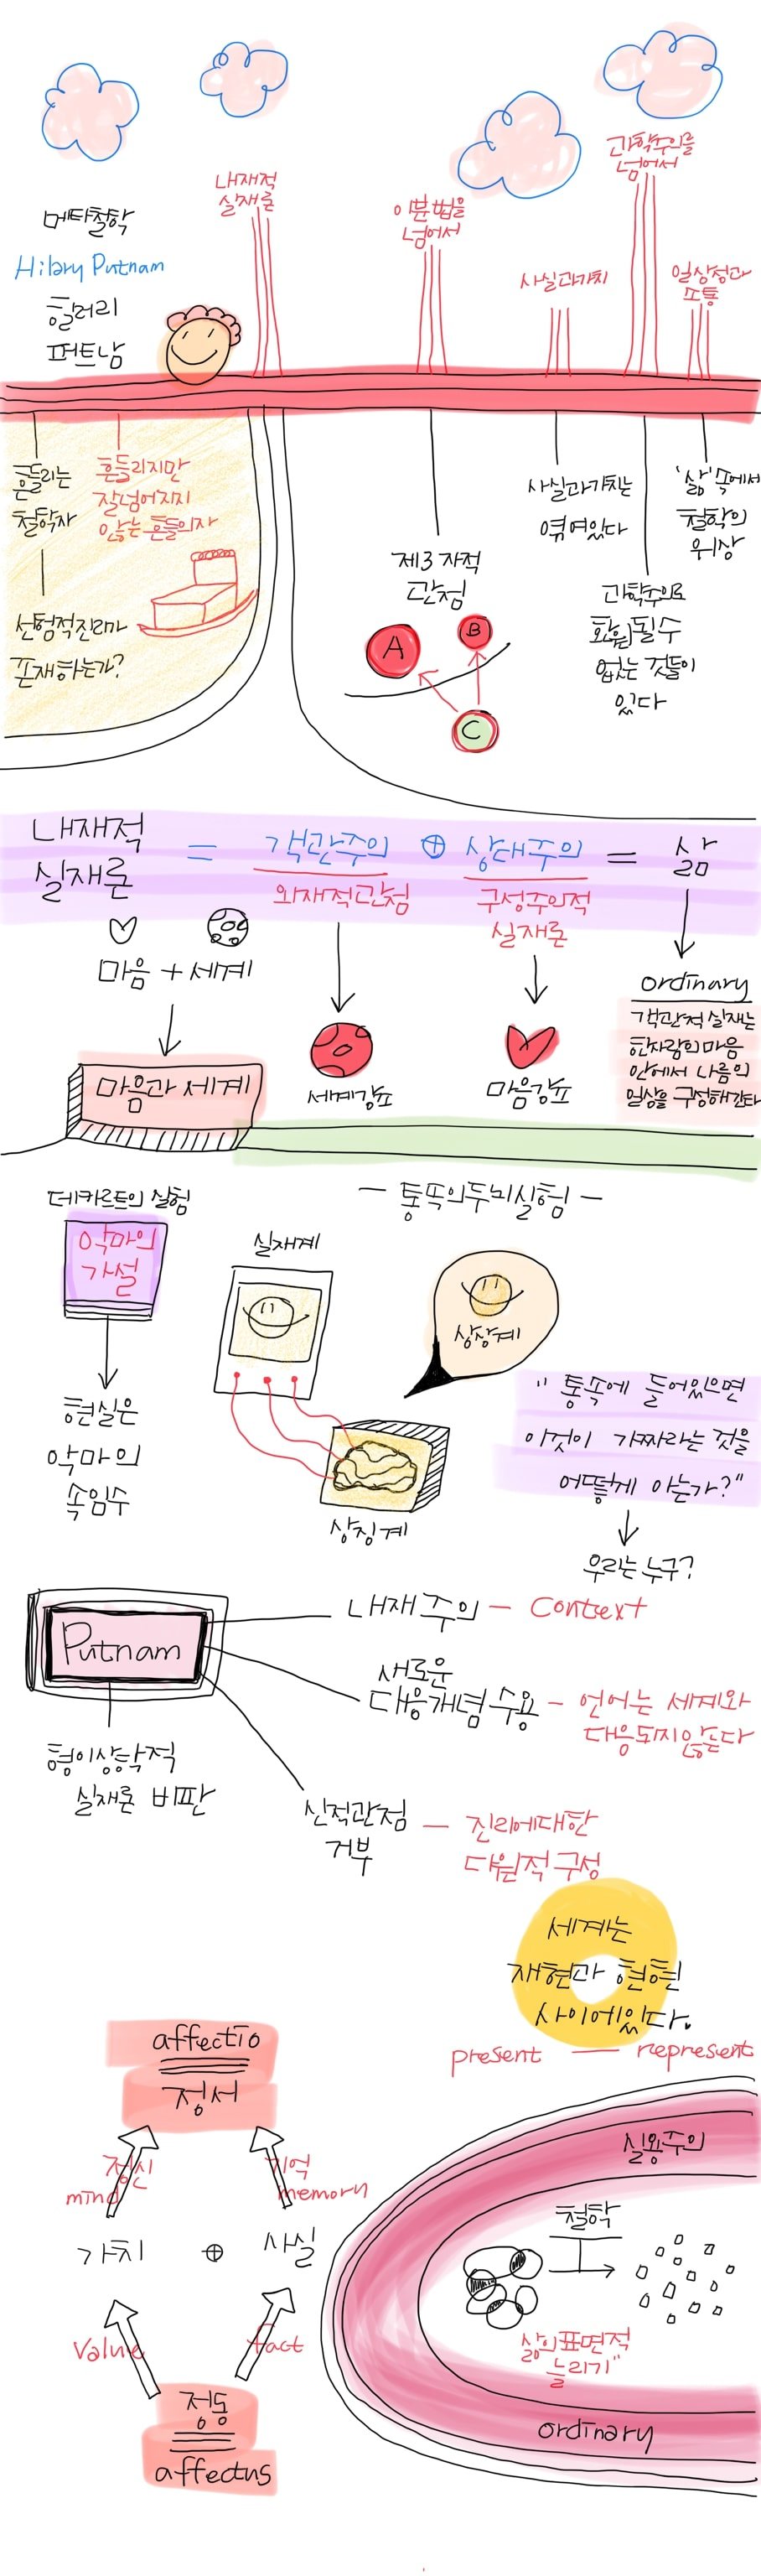 메타철학
Hilary Putnam
힐러리
퍼트남
내재적
실재론
이분법을
넘어서
사실과가치
과학주의를
넘어서
일상성과
소통
흔들리는
철학자
선험적진리가
존재하는가?
흔들리지만
잘넘어지지
않는 흔들의자
제3자적
관점
A
B
C
사실과가치는
엮여있다
과학주의로
환원될수
없는 것들이
있다
'삶'속에서
철학의
위상
내재적
실재론
=
객관주의
외재적관점
⊕
상대주의
구성주의적
실재론
=
삶
마음 + 세계
마음과 세계
세계강조
마음강조
ordinary
객관적 실재는
한사람의 마음
안에서 나름의
일상을 구성해간다
데카르트의 실험
악마의
가설
현실은
악마의
속임수
- 통속의두뇌실험 -
실재계
상상계
상징계
"통속에 들어있으면
이것이 가짜라는 것을
어떻게 아는가?"
우리는 누구?
Putnam
형이상학적
실재론 비판
내재주의 - Context
새로운
대응개념 수용 - 언어는 세계와
대응되지않는다
신적관점
거부
- 진리에대한
다원적 구성
세계는
재현과 현현
사이에있다.
present — represent
affectio
정서
정신
mind
기억
memory
가치 ⊕ 사실
Value
fact
정동
affectus
실용주의
철학
삶의표면적
늘리기"
ordinary